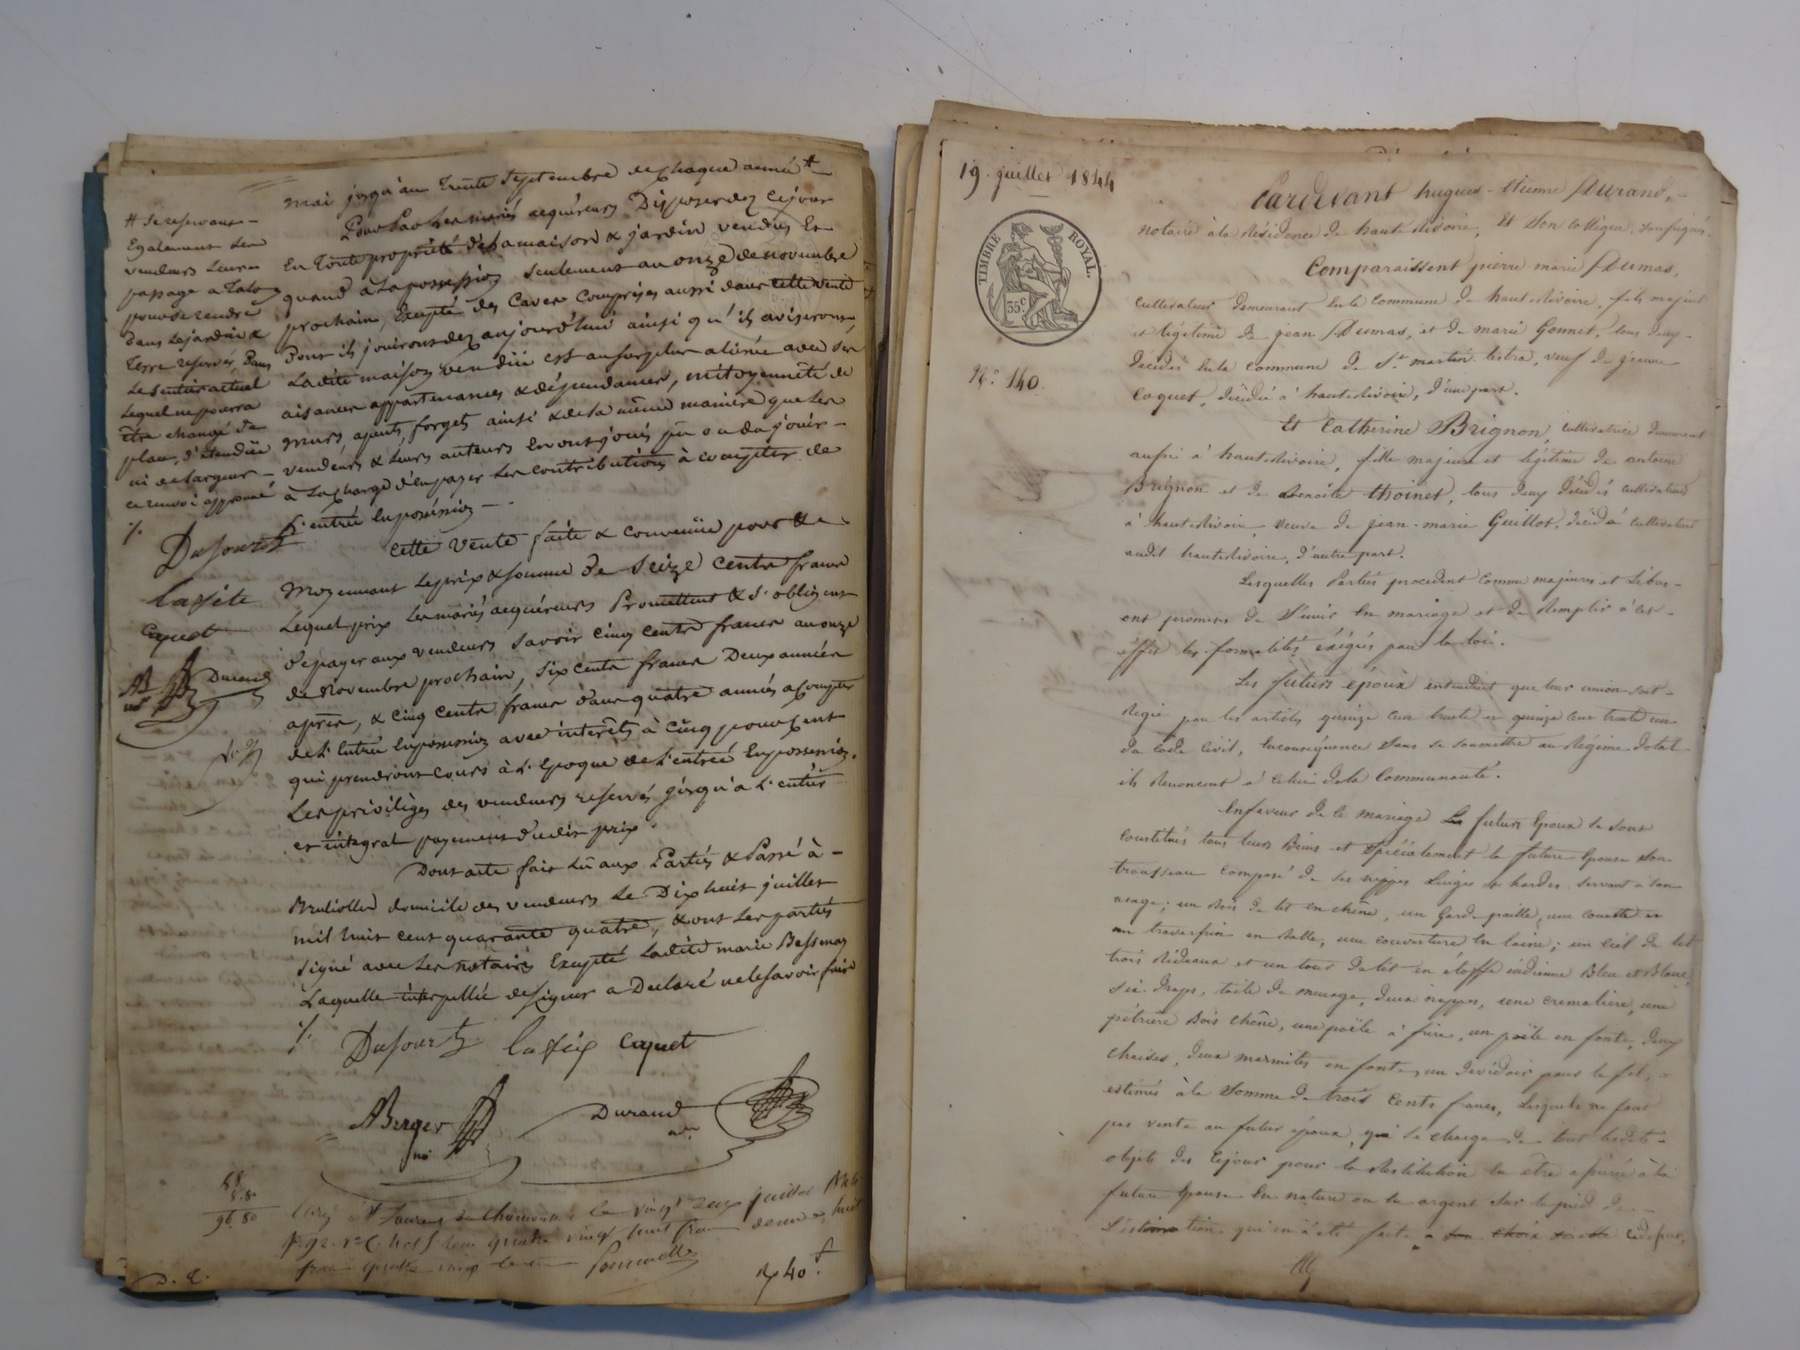 mai jusqu'au trente Septembre de chaque année #
Pour par les mariés acquéreurs Disposer dez cejour
En toute propriété de la maison & jardin vendus Et
quand à la possession seulement au onze de novembre
prochain, Excepté des Caves Comprises aussi dans cette vente
Dont ils jouiront dez aujourd'hui ainsi qu'ils aviseront,
Ladite maison vendüe est au surplus aliénée avec ses
aisances appartenances & dépendances, mitoyenneté de
murs, ajents, forgets ainsi & de la même manière que les
vendeurs & leurs auteurs en ont joui pu ou du jouir –
à la charge d'en payer les contributions à compter de
L'entrée en possession –
# se reservant –
Egalement les
vendeurs leur
passage a talon
pour se rendre
dans le jardin &
Terre reservés, dans
Le Sentier actuel
Lequel ne pourra
être changé de
place, d'étendüe
ni de largeur –
ce renvoi approuvé
Dufourt
Laféte
Caquet
AB
Durand
Cette vente faite & convenüe pour &
Moyennant Le prix & somme de Seize Cents francs
Lequel prix Les mariés acquéreurs Promettent & S'obligent
de payer aux vendeurs savoir Cinq Cents francs au onze
de Novembre prochain, Six cents francs Deux années
après, & Cinq Cents francs dans quatre années à compter
de L'entrée en possession avec intérêts à Cinq pour Cent
qui prendront Cours à L'époque de L'entrée en possession.
Les priviléges des vendeurs reservés jusqu'à L'entier
et intégral payement dudit prix.
Dont acte fait Lu aux Parties & Passé à –
Brullioles domicile des vendeurs Le Dix huit juillet
mil huit cent quarante quatre, & ont Les parties
signé avec Les notaires Excepté Ladite marie Bassenay
Laquelle interpellée de signer a Declaré ne le savoir faire
Dufourt Laféte Caquet
ABerger
Durand
88
8.80
96.80
Le vingt deux juillet 1844
quatre vingt huit francs
francs quatre vingt
40 f.
D. E.
19. juillet 1844
TIMBRE ROYAL.
35c
N° 140.
Pardevant hugues-étienne Durand, –
notaire à la Résidence de haute Rivoire, Et Son Collégue, Soussignés.
Comparaissent pierre marie Dumas,
Cultivateur demeurant en la Commune de hauterivoire, fils majeur
et légitime de jean Dumas, et de marie Gonnet, tous deux
décédés en la commune de St martin Lestra, veuf de jeanne
Caquet, décédée à hauterivoire, d'une part.
Et Catherine Brignon, cultivatrice demeurant
aussi à hauterivoire, fille majeure et légitime de antoine
Brignon et de Benoite thoinet, tous deux décédés cultivateurs
à hauterivoire, veuve de jean-marie Guillot, décédé cultivateur
audit hauterivoire, d'autre part.
Lesquelles Parties procédent comme majeures et Libres –
ont promis de S'unir en mariage et de Remplir à cet –
éffet les formalités éxigées par la loi.
Les futurs époux entendent que leur union soit –
Régie par les articles quinze cent trente et quinze cent trente un
du Code Civil, en conséquence Sans se soumettre au Régime dotal
ils Renoncent à celui de la Communauté.
En faveur de ce mariage Les futurs Epoux se sont
Constitués tous leurs Biens et Spécialement la future Epouse Son
trousseau composé de ses nippes Linges et hardes servant à son
usage; un Bois de lit en chêne, un Garde-paille, une couette et
un traversin en Balle, une couverture en laine; un ciel de lit
trois Rideaux et un tour de lit en étoffe indienne Bleu et Blanc,
six draps, toile de menage, deux nappes, une cremalière, une
pétrière Bois chêne, une poële à frire, un poële en fonte, deux
chaises, deux marmites en fonte, un Dévidoir pour le fil, =
estimés à la Somme de trois Cents francs, Lesquels ne font
pas vente au futur époux, qui se charge de tout lesdits –
objets dez Cejour pour la Restitution en être assurée à la
future Epouse en nature ou en argent Sur le pied de –
L'estimation qui en a été faite à